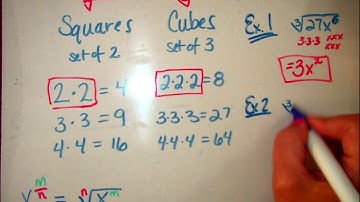 Squares
set of 2
2·2 = 4
3·3 = 9
4·4 = 16
Cubes
set of 3
2·2·2 = 8
3·3·3 = 27
4·4·4 = 64
Ex.1 ∛27x⁶
3·3·3 xxx
xxx
=3x²
Ex.2 ∛
x^(m/n) = ⁿ√x^m